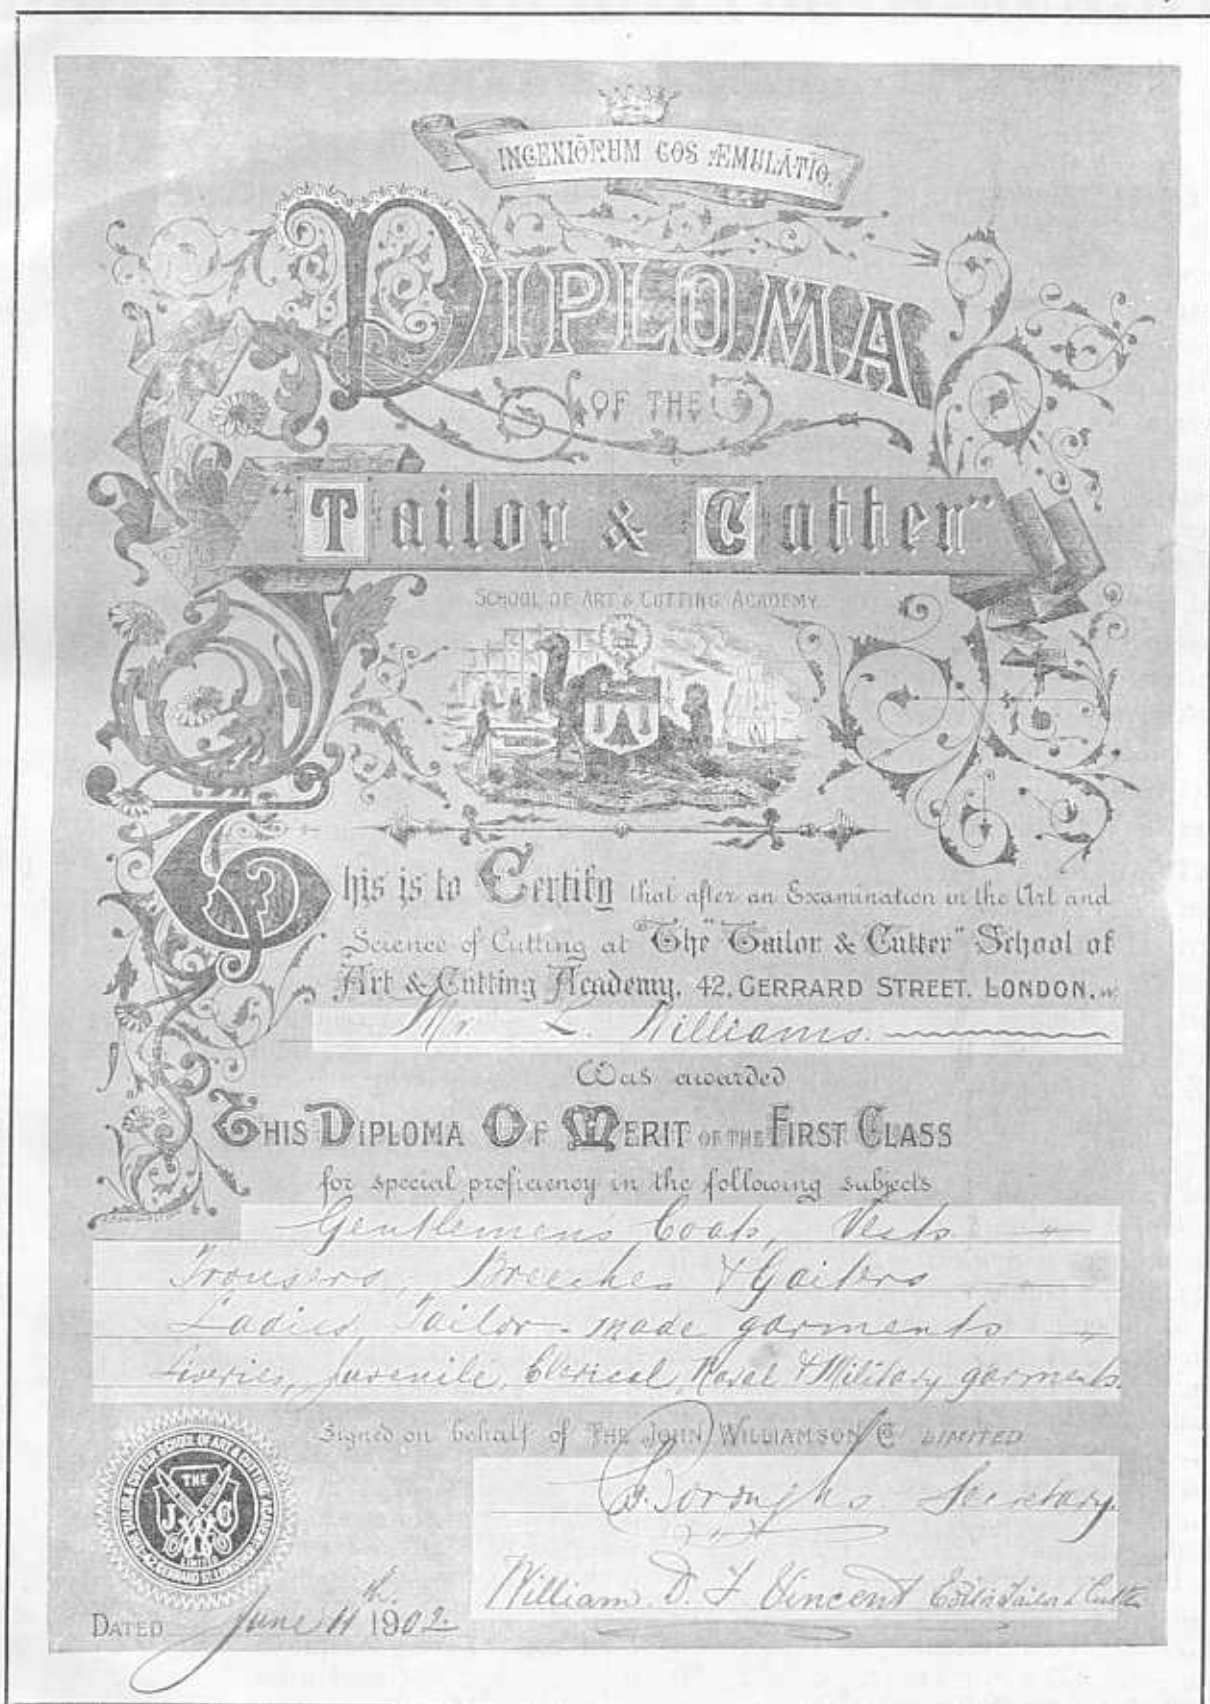 INGENIŌRUM COS ÆMULĀTIO.
DIPLOMA
OF THE
"Tailor & Cutter"
SCHOOL OF ART & CUTTING ACADEMY
This is to Certify that after an Examination in the Art and
Science of Cutting at "The "Tailor & Cutter" School of
Art & Cutting Academy, 42, GERRARD STREET. LONDON, W
Mr. L. Williams.
Was awarded
THIS DIPLOMA OF MERIT OF THE FIRST CLASS
for special proficiency in the following subjects
Gentlemens Coats, Vests
Trousers, Breeches & Gaiters
Ladies Tailor-made garments
Liveries, Juvenile, Clerical, Naval & Military garments.
Signed on behalf of THE JOHN WILLIAMSON Co LIMITED
Secretary.
William. D. F. Vincent Editor Tailor & Cutter
TAILOR & CUTTER SCHOOL OF ART & CUTTING ACADEMY
42, GERRARD ST. LONDON
THE
J W C
LIMITED
DATED June 11th. 1902.